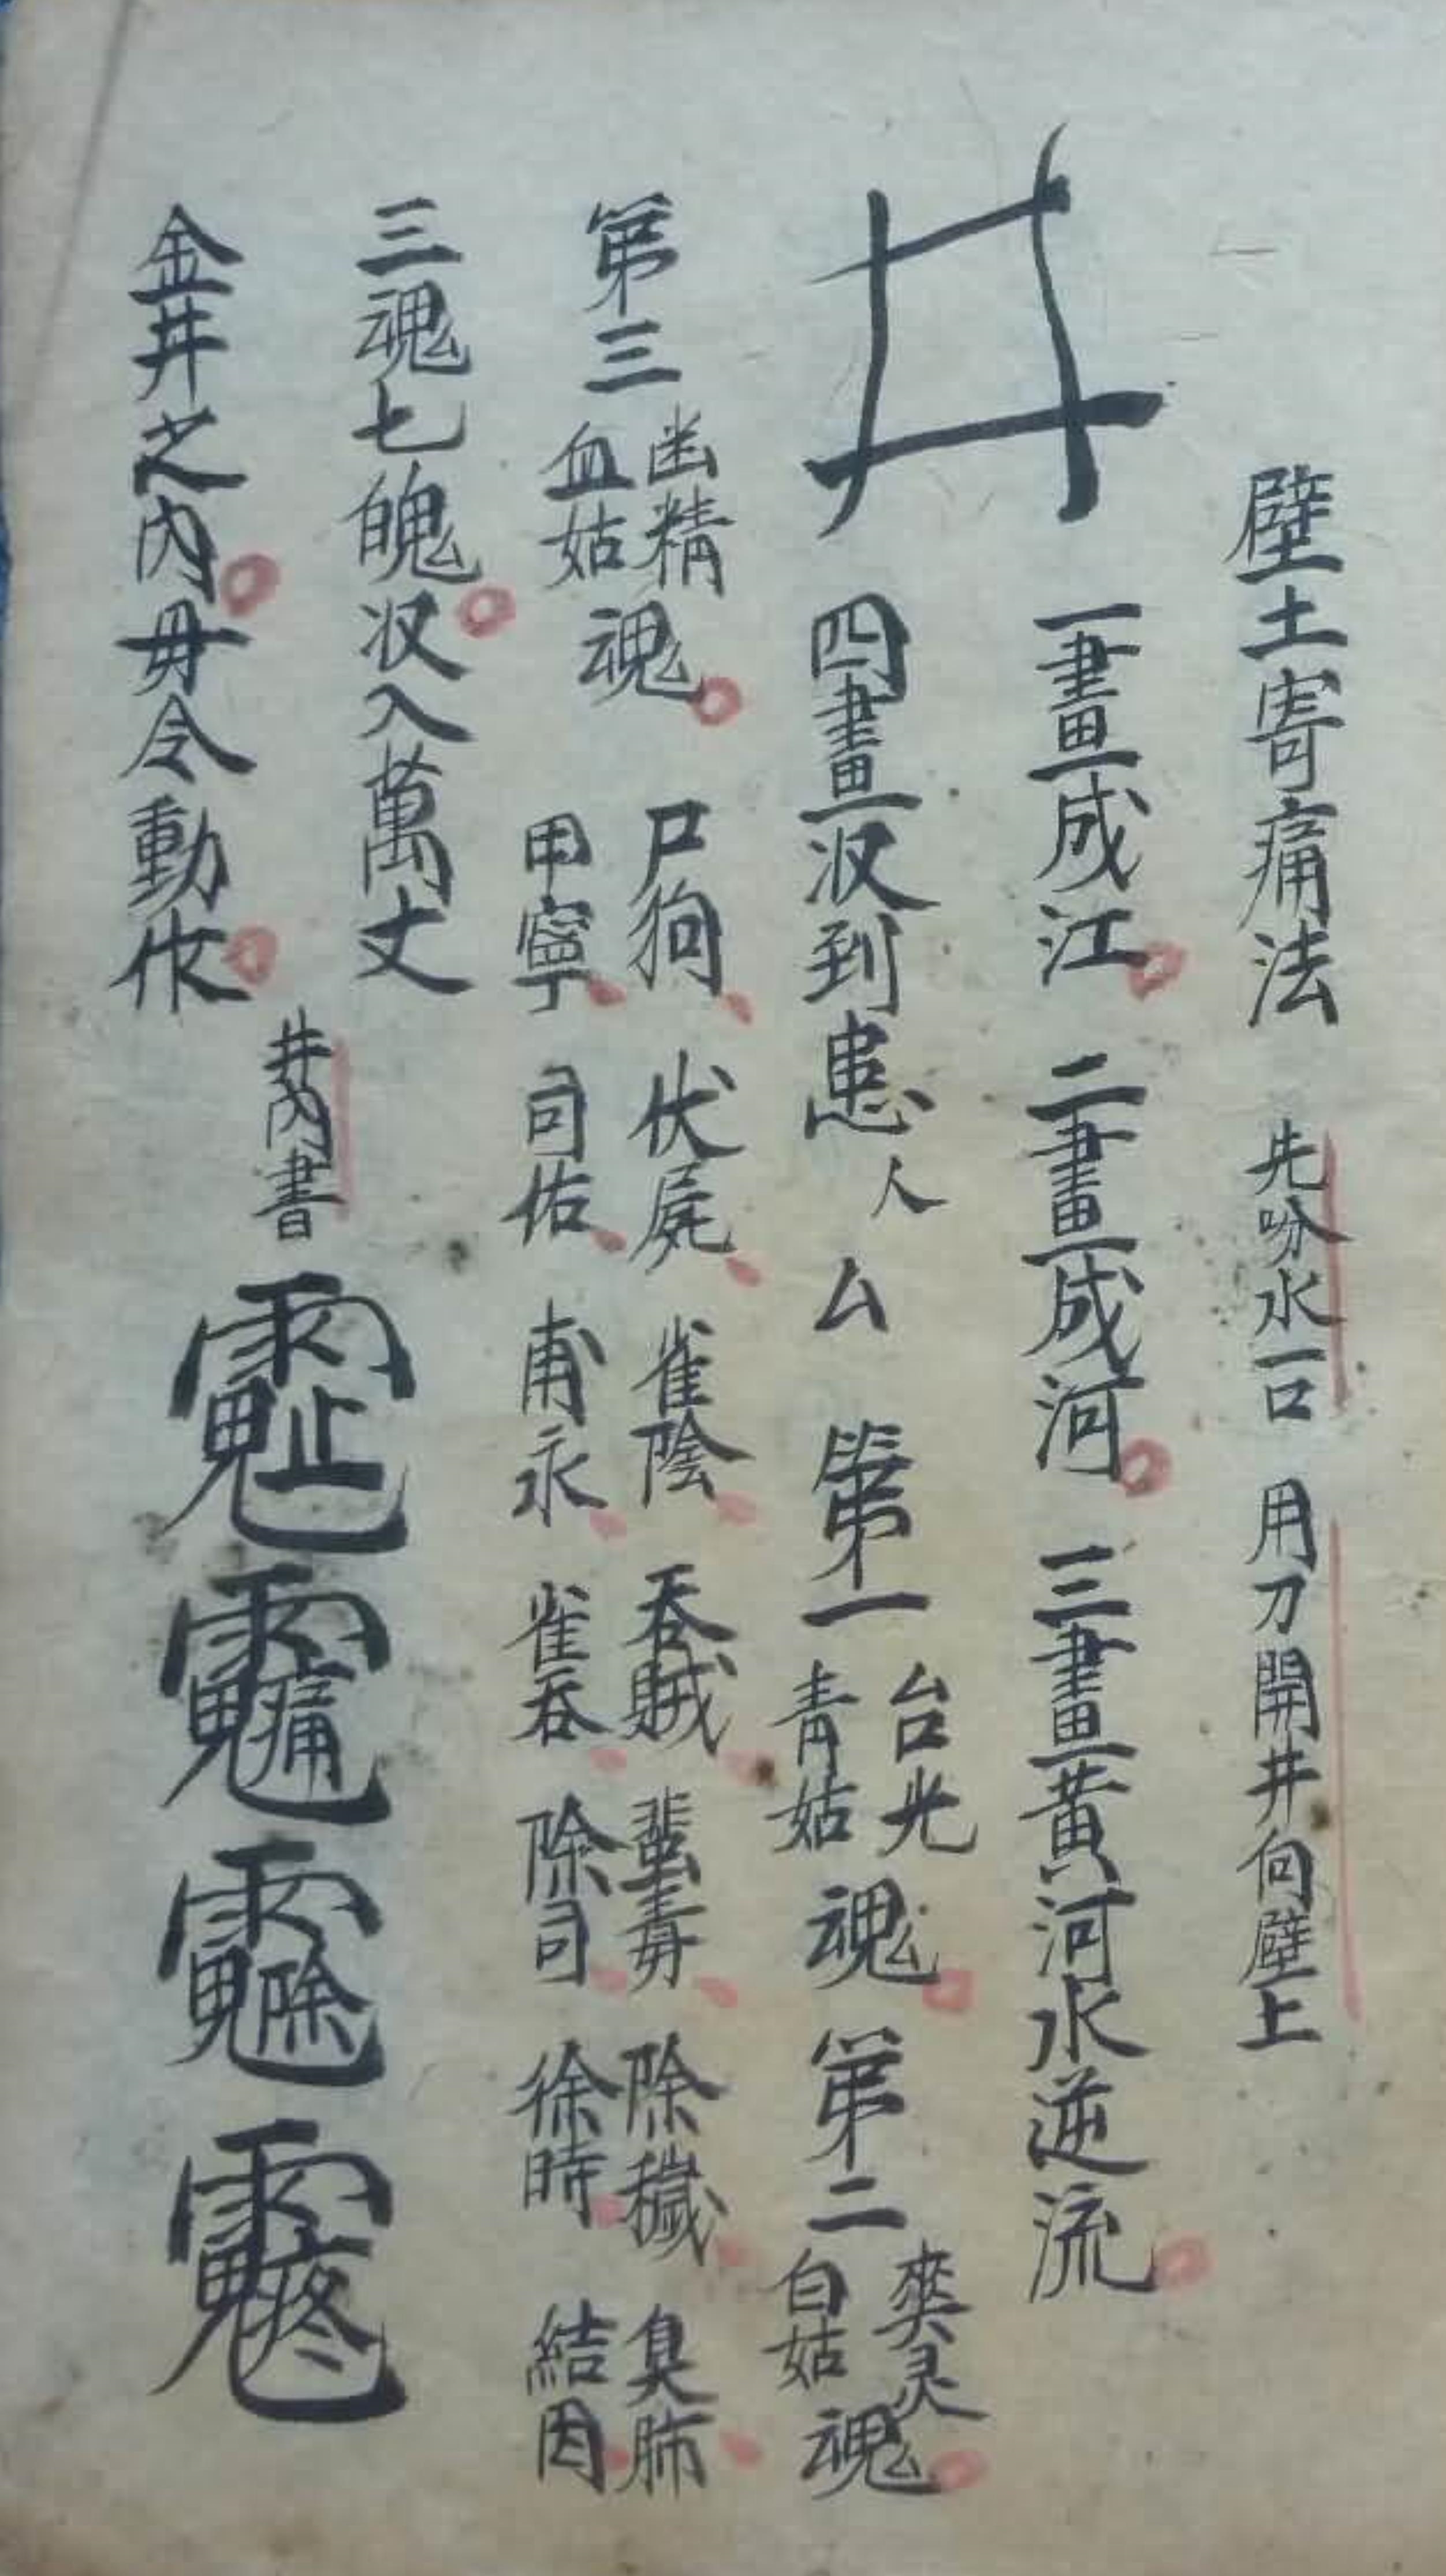 壁土寄痛法 先吩水一口 用刀開井向壁上
井 一畫成江 二畫成河 三畫黃河水逆流
四畫收到患人 厶 第一 台光 青姑 魂 第二 爽灵 白姑 魂
第三 幽精 血姑 魂 尸狗 伏屍 雀陰 吞賊 蜚毒 除穢 臭肺
甲寧 司佑 甫永 雀吞 除司 徐時 結因
三魂七魄收入萬丈
金井之內毋令動作 井內書